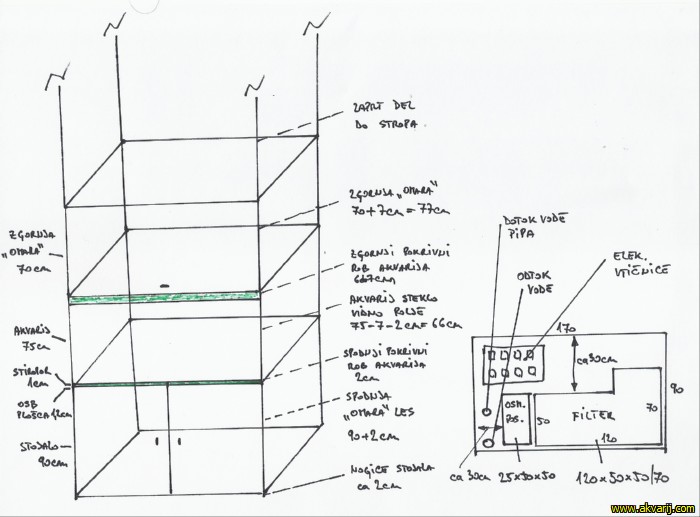 ZAPRT DEL
DO STROPA
ZGORNJA "OMARA"
70+7cm = 77cm
ZGORNJA
"OMARA"
70cm
ZGORNJI POKRIVNI
ROB AKVARIJA
AKVARIJ STEKLO
VIDNO POLJE
75-7-2cm = 66cm
AKVARIJ
75cm
SPODNJI POKRIVNI
ROB AKVARIJA
2cm
STIROPOR
1cm
OSB
PLOŠČA 12cm
SPODNJA
"OMARA" LES
90+2cm
STOJALO
90cm
NOGICE STOJALA
ca 2cm
DOTOK VODE
PIPA
ODTOK
VODE
ELEK.
VTIČNICE
170
ca 30cm
90
OSM.
POS.
50
FILTER
70
120
ca 30cm
25x50x50
120x50x50/70
www.akvarij.com